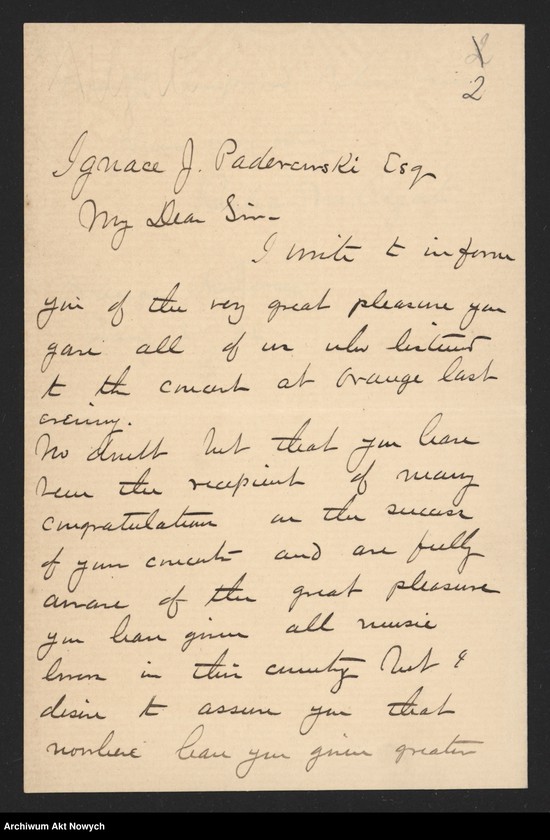 2
2
Ignace J. Paderewski Esq
My Dear Sir-
I write to inform
you of the very great pleasure you
gave all of us who listened
to the concert at Orange last
evening.
No doubt but that you have
been the recipient of many
congratulations on the success
of your concerts and are fully
aware of the great pleasure
you have given all music
lovers in this country but I
desire to assure you that
nowhere have you given greater
Archiwum Akt Nowych